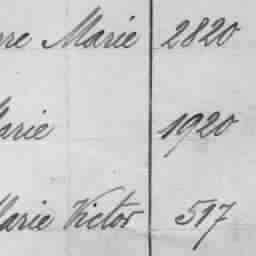 rre Marie 2820
Marie 1920
Marie Victor 517